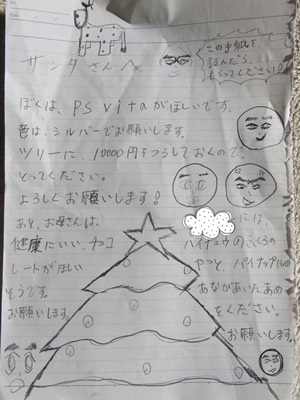 サンタさんへ
この手紙を
読んだら、
笑ってください!
ぼくは、PS vitaがほしいです。
色は、シルバーでお願いします。
ツリーに、10000円をつるしておくので、
とってください。
よろしくお願いします!
あと、お母さんは、
健康にいい、チョコ
レートがほしい
そうです。
お願いします。
には、
ハイチュウのふくろの
やつと、パイナップルの
あながあいたあめ
をください。
お願いします。